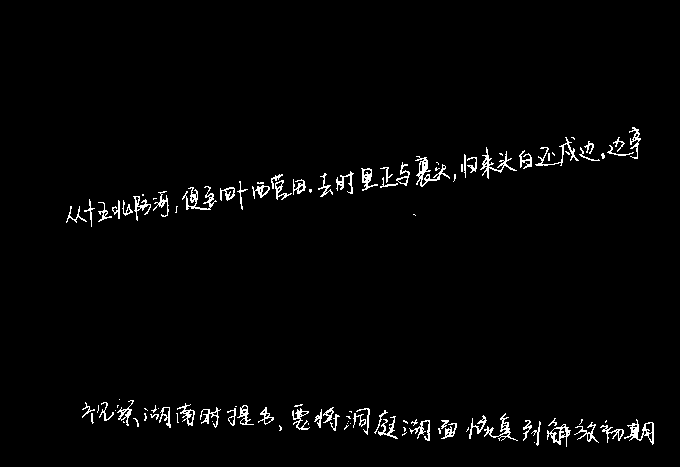 从十五北防河,便至四十西营田.去时里正与裹头,归来头白还戍边.边亭
视察湖南时提出,要将洞庭湖面恢复到解放初期